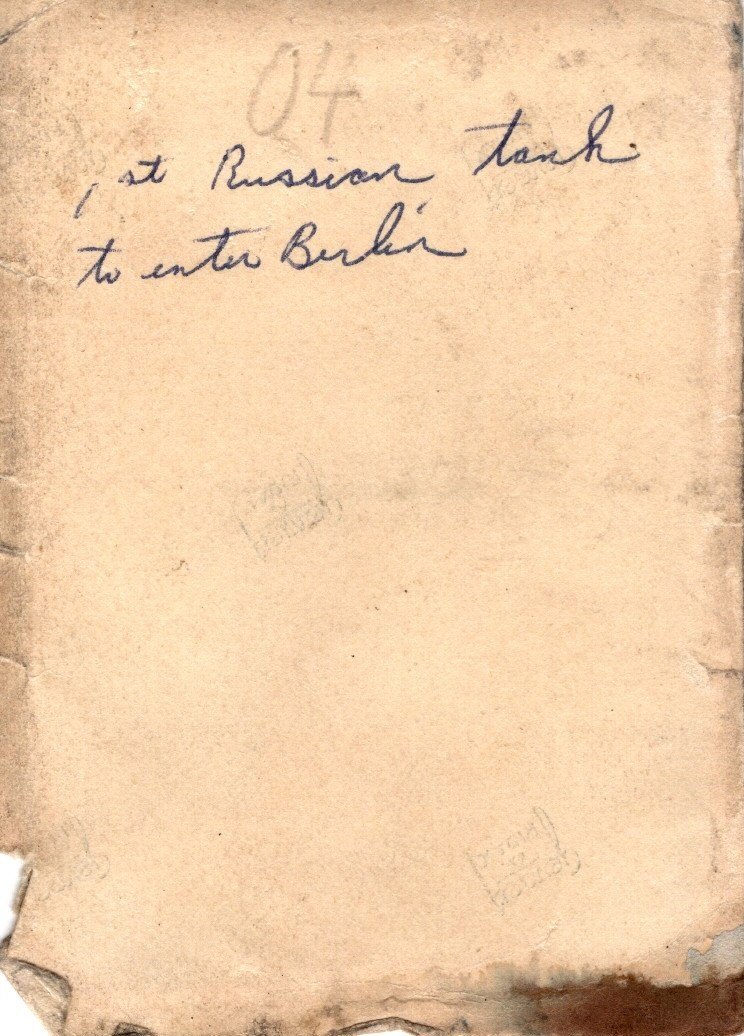 04
1st Russian tank
to enter Berlin